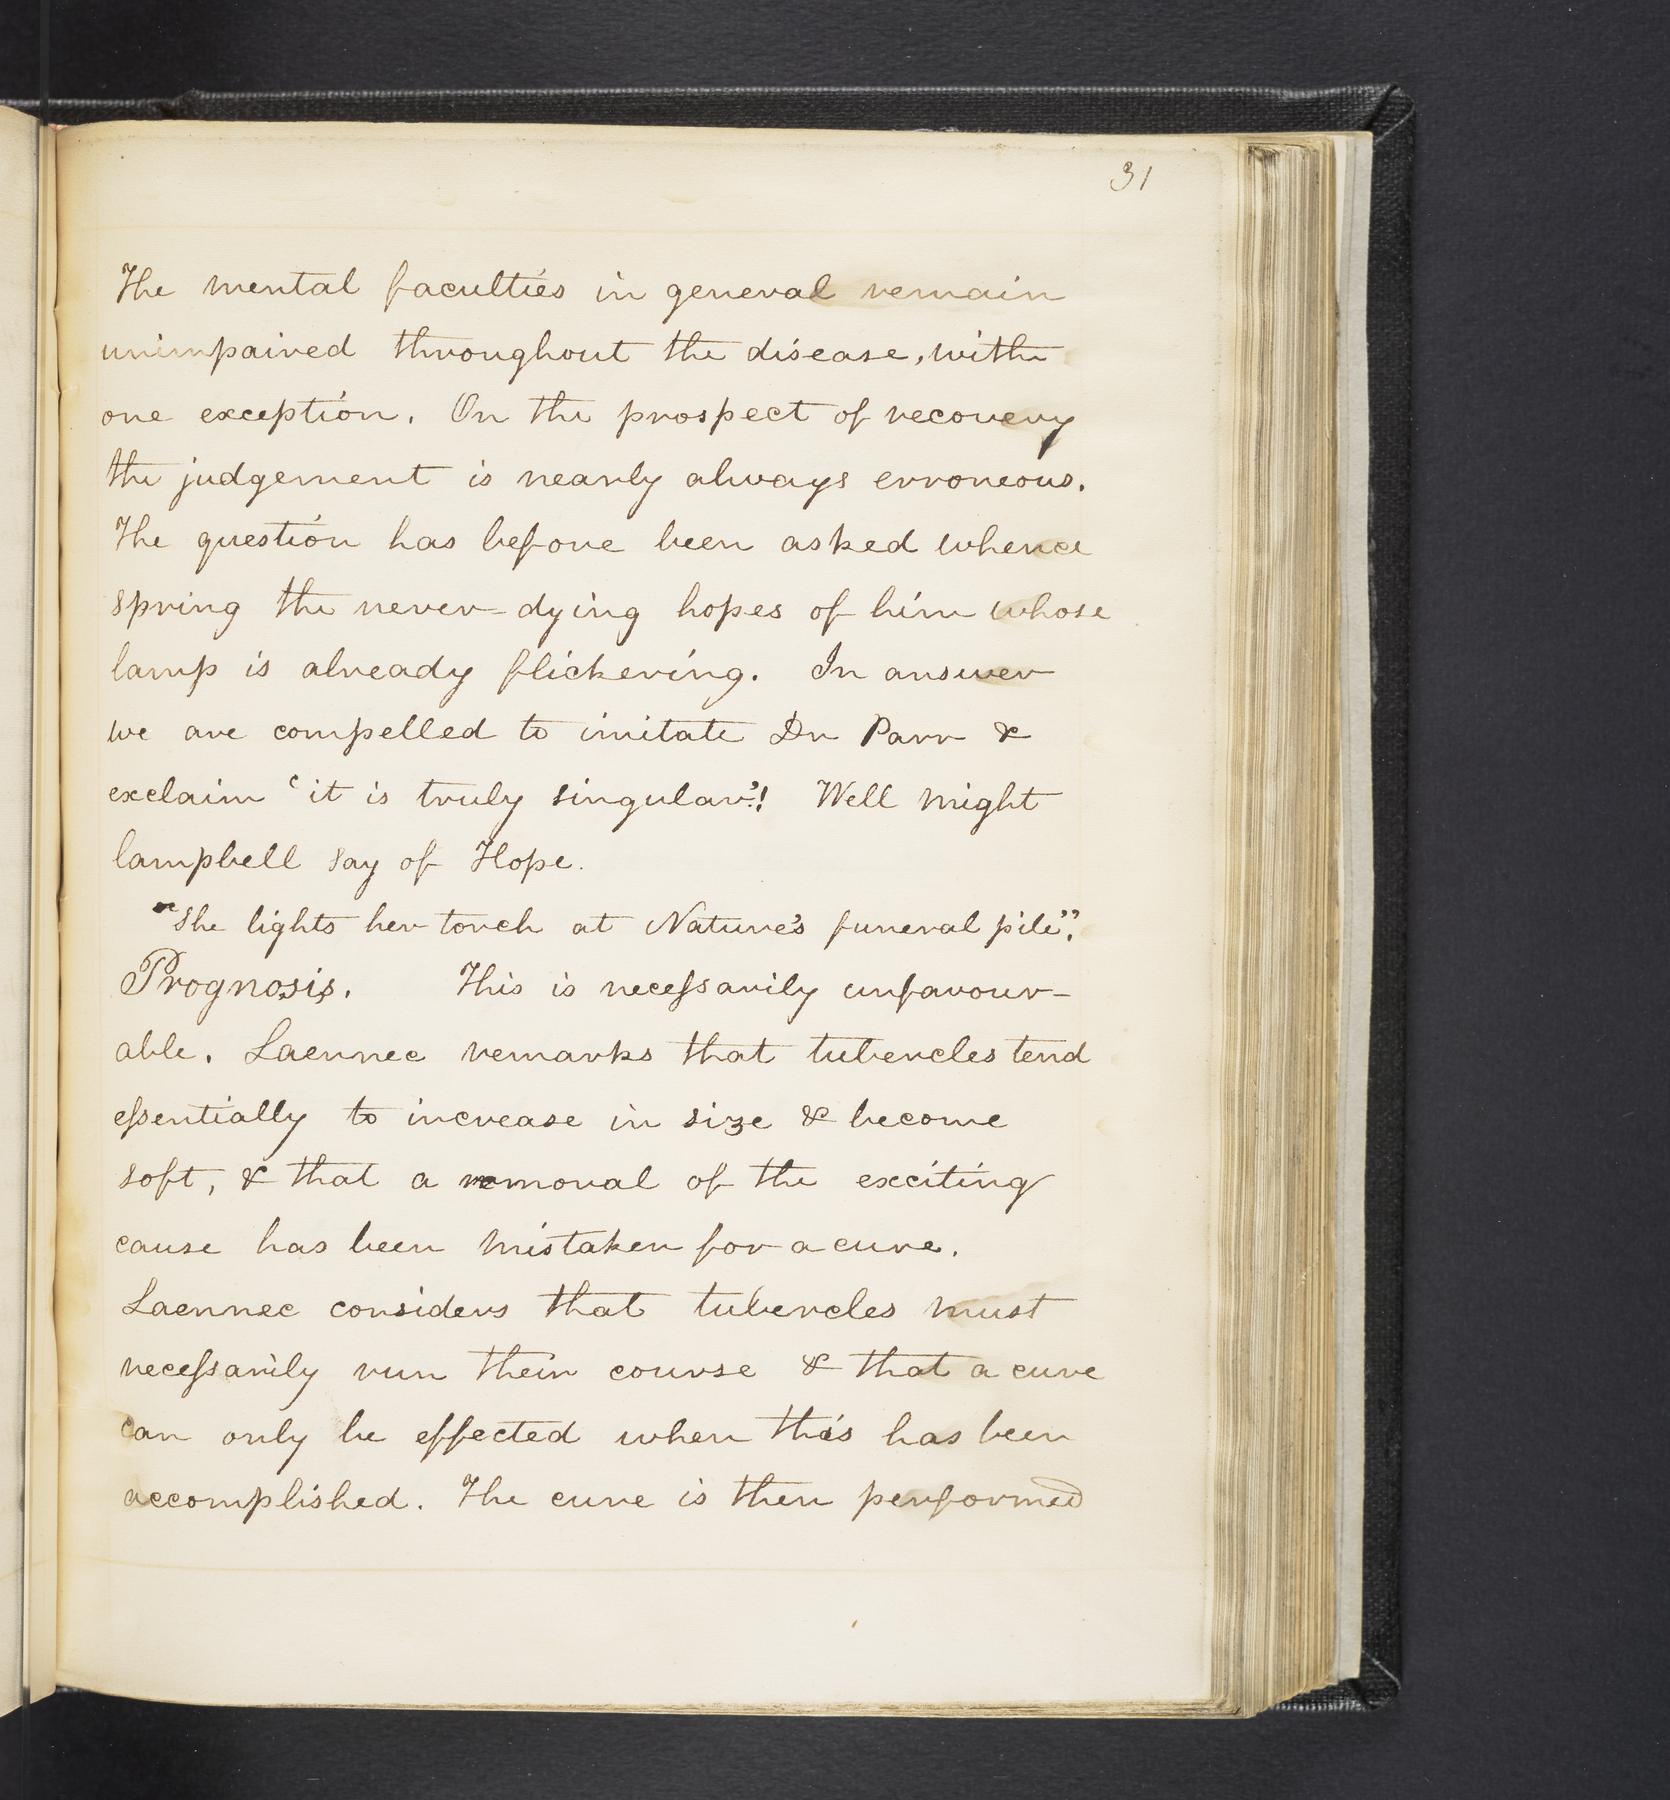 31
The mental faculties in general remain
unimpaired throughout the disease, with
one exception. On the prospect of recovery
the judgement is nearly always erroneous.
The question has before been asked whence
spring the never-dying hopes of him whose
lamp is already flickering. In answer
we are compelled to imitate Dr Parr &
exclaim 'it is truly singular'! Well might
Campbell say of Hope.
"She lights her torch at Nature's funeral pile".
Prognosis. This is necessarily unfavour-
able. Laennec remarks that tubercles tend
essentially to increase in size & become
soft, & that a removal of the exciting
cause has been mistaken for a cure.
Laennec considers that tubercles must
necessarily run their course & that a cure
can only be effected when this has been
accomplished. The cure is then performed